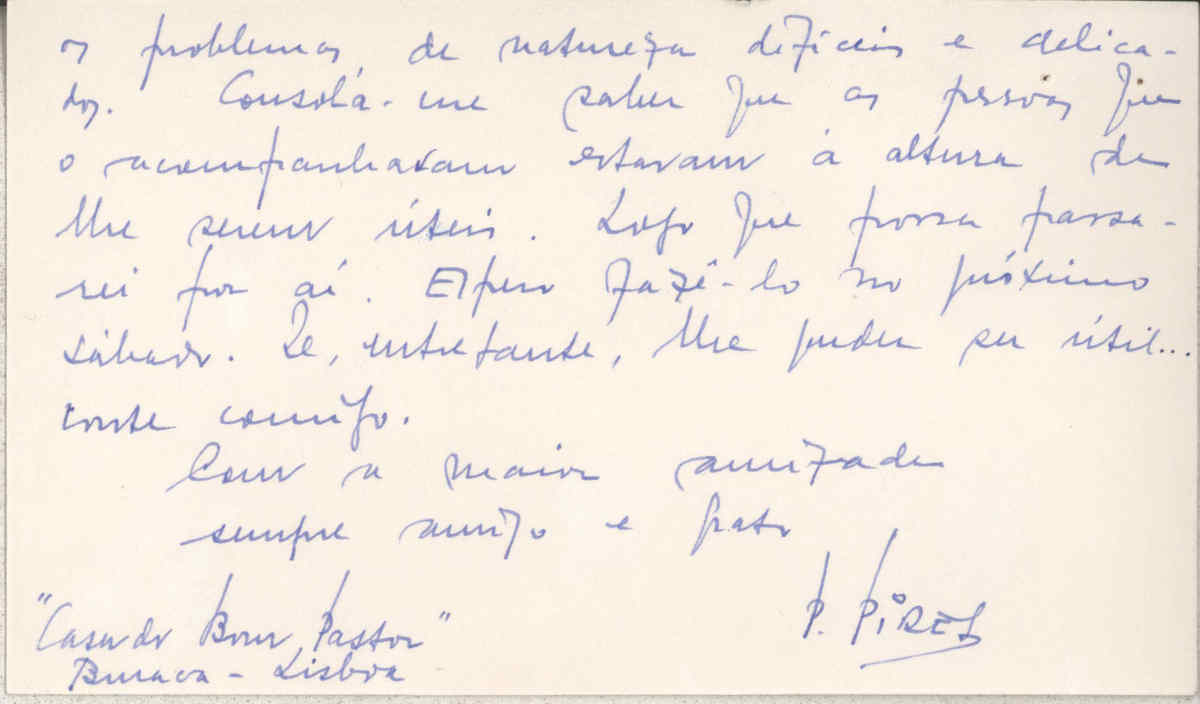 os problemas de natureza difíceis e delica-
dos. Consola-me saber que as pessoas que
o acompanhavam estavam à altura de
lhe serem úteis. Logo que possa passa-
rei por aí. Espero fazê-lo no próximo
sábado. Se, entretante, lhe puder ser útil...
conte comigo.
Com a maior amizade
sempre amigo e grato
P. PIRES
"Casa do Bom Pastor"
Buraca - Lisboa